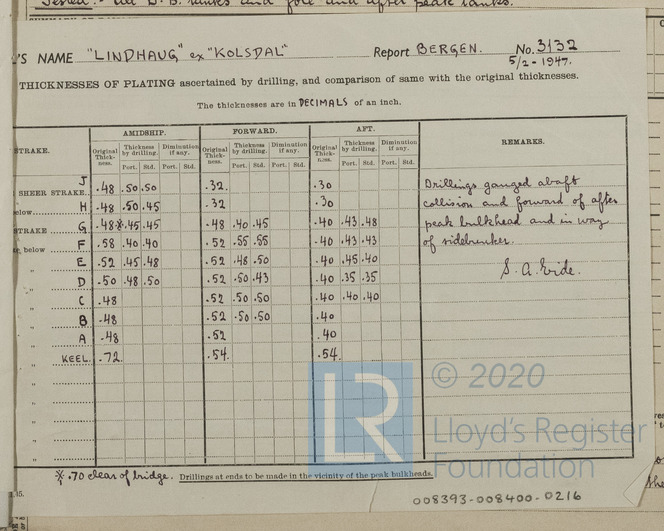 Tested:- all D.B. tanks and fore and after peak tanks.
'S NAME "LINDHAUG" ex "KOLSDAL" Report BERGEN. No. 3132
5/2-1947.
THICKNESSES OF PLATING ascertained by drilling, and comparison of same with the original thicknesses.
The thicknesses are in DECIMALS of an inch.
STRAKE. AMIDSHIP. FORWARD. AFT. REMARKS.
Original Thickness. Thickness by drilling. Diminution if any. Original Thickness. Thickness by drilling. Diminution if any. Original Thickness. Thickness by drilling. Diminution if any.
Port. Std. Port. Std. Port. Std. Port. Std. Port. Std. Port. Std.
SHEER STRAKE. J .48 .50 .50 .32 .30 Drillings gauged abaft
below H .48 .50 .45 .32 .30 collision and forward of after
STRAKE G .48 * .45 .45 .48 .40 .45 .40 .43 .48 peak bulkhead and in way
below F .58 .40 .40 .52 .55 .55 .40 .43 .43 of sidebunker.
„ E .52 .45 .48 .52 .48 .50 .40 .45 .40
„ D .50 .48 .50 .52 .50 .43 .40 .35 .35 S. A. Eide.
„ C .48 .52 .50 .50 .40 .40 .40
„ B .48 .52 .50 .50 .40
„ A .48 .52 .40
„ KEEL .72 .54 .54
* .70 clear of bridge. Drillings at ends to be made in the vicinity of the peak bulkheads.
LR
© 2020
Lloyd's Register
Foundation
008393-008400-0216